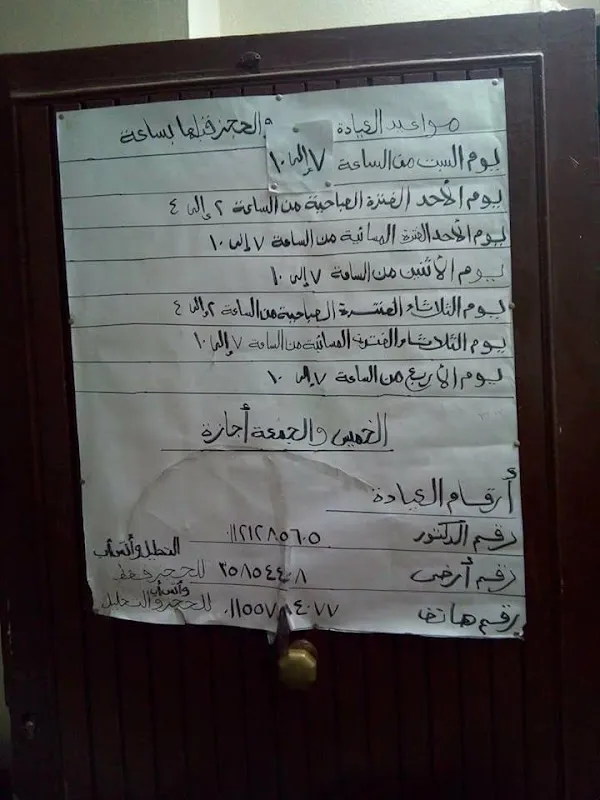 مواعيد العيادة والحجز قبلها بساعة
يوم السبت من الساعة ٧ إلى ١٠
يوم الأحد الفترة الصباحية من الساعة ٢ إلى ٤
يوم الأحد الفترة المسائية من الساعة ٧ إلى ١٠
يوم الأثنين من الساعة ٧ إلى ١٠
يوم الثلاثاء الفترة الصباحية من الساعة ٢ إلى ٤
يوم الثلاثاء الفترة المسائية من الساعة ٧ إلى ١٠
يوم الأربع من الساعة ٧ إلى ١٠
الخميس والجمعة أجازة
أرقام العيادة
رقم الدكتور ٠١١٢١٢٨٥٦٠٥ وأتسأب
رقم أرضى ٢٥٨٥٤٤٠٨ للحجز فقط
رقم هاتف للحجز والتحليل وأتسأب